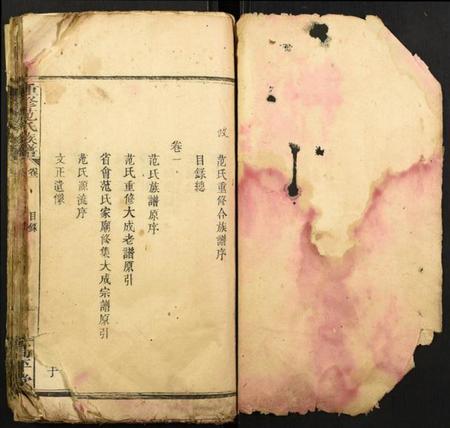 范氏重修合族譜序
目錄總
卷一
范氏族譜原序
范氏重修大成老譜原引
省會范氏家廟修集大成宗譜原引
范氏源流序
文正遺像
重修范氏族譜
卷
目錄